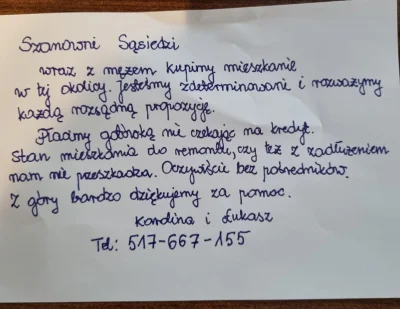 Szanowni Sąsiedzi
wraz z mężem kupimy mieszkanie
w tej okolicy. Jesteśmy zdeterminowani i rozważymy
każdą rozsądną propozycję.
Płacimy gotówką nie czekając na kredyt.
Stan mieszkania do remontu, czy też z zadłużeniem
nam nie przeszkadza. Oczywiście bez pośredników.
Z góry bardzo dziękujemy za pomoc.
Karolina i Łukasz
Tel: 517-667-155